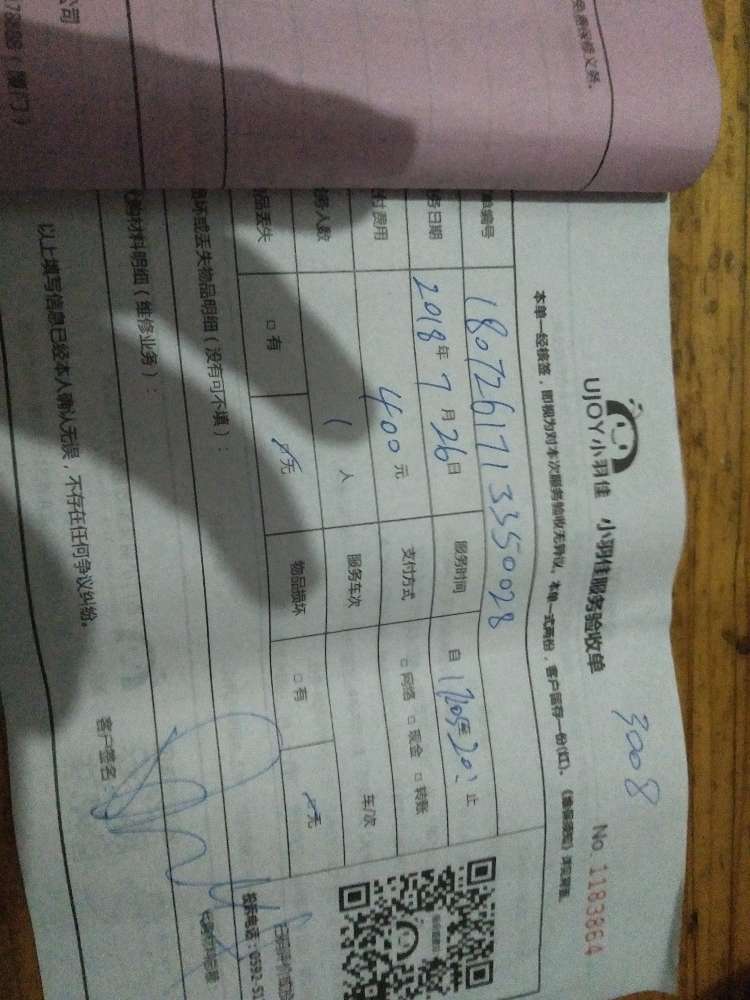 3008
UJOY小羽佳 小羽佳服务验收单 No. 1183864
本单一经核签，即视为对本次服务验收无异议，本单一式两份，客户留存一份(红)。
单编号 18072617133350028
务日期 2018年7月26日 服务时间 自 至 止
付费用 400元 支付方式 □网络 □现金 □转账
务人数 1人 服务车次 车/次
品丢失 □有 ☑无 物品损坏 □有 ☑无
损坏或丢失物品明细（没有可不填）：
购材料明细（维修业务）：
以上填写信息已经本人确认无误，不存在任何争议纠纷。 客户签名：
投诉电话：0592-51
公司
（厦门）